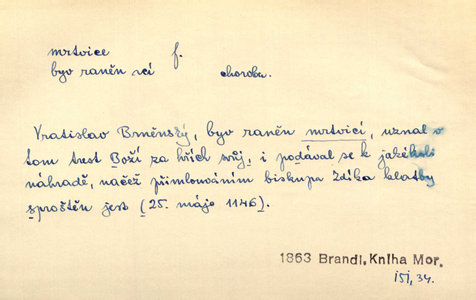 mrtvice f.
byv raněn -cí choroba.
Vratislav Brněnský, byv raněn mrtvicí, uznal v
tom trest Boží za hřích svůj, i podával se k jakékoli
náhradě, načež přimlouváním biskupa Zdíka klatby
sproštěn jest (25. máje 1146).
1863 Brandl, Kniha Mor.
151, 34.